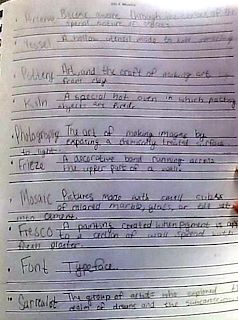 Become aware through the senses of the
Vessel A hollow utensil made to
Pottery Art, and the craft of making art
from clay
Kiln A special hot oven in which pottery
objects are fired.
Photography The art of making images by
exposing a chemically treated surface
to light.
Frieze A decorative band running across
the upper part of a wall.
Mosaic Pictures made with small cubes
of colored marble, glass, or tile set
into cement.
Fresco A painting created when pigment is
to a section of wall spread with
fresh plaster.
Font Typeface.
Surrealist The group of artists who explored
realm of dreams and the subconscious